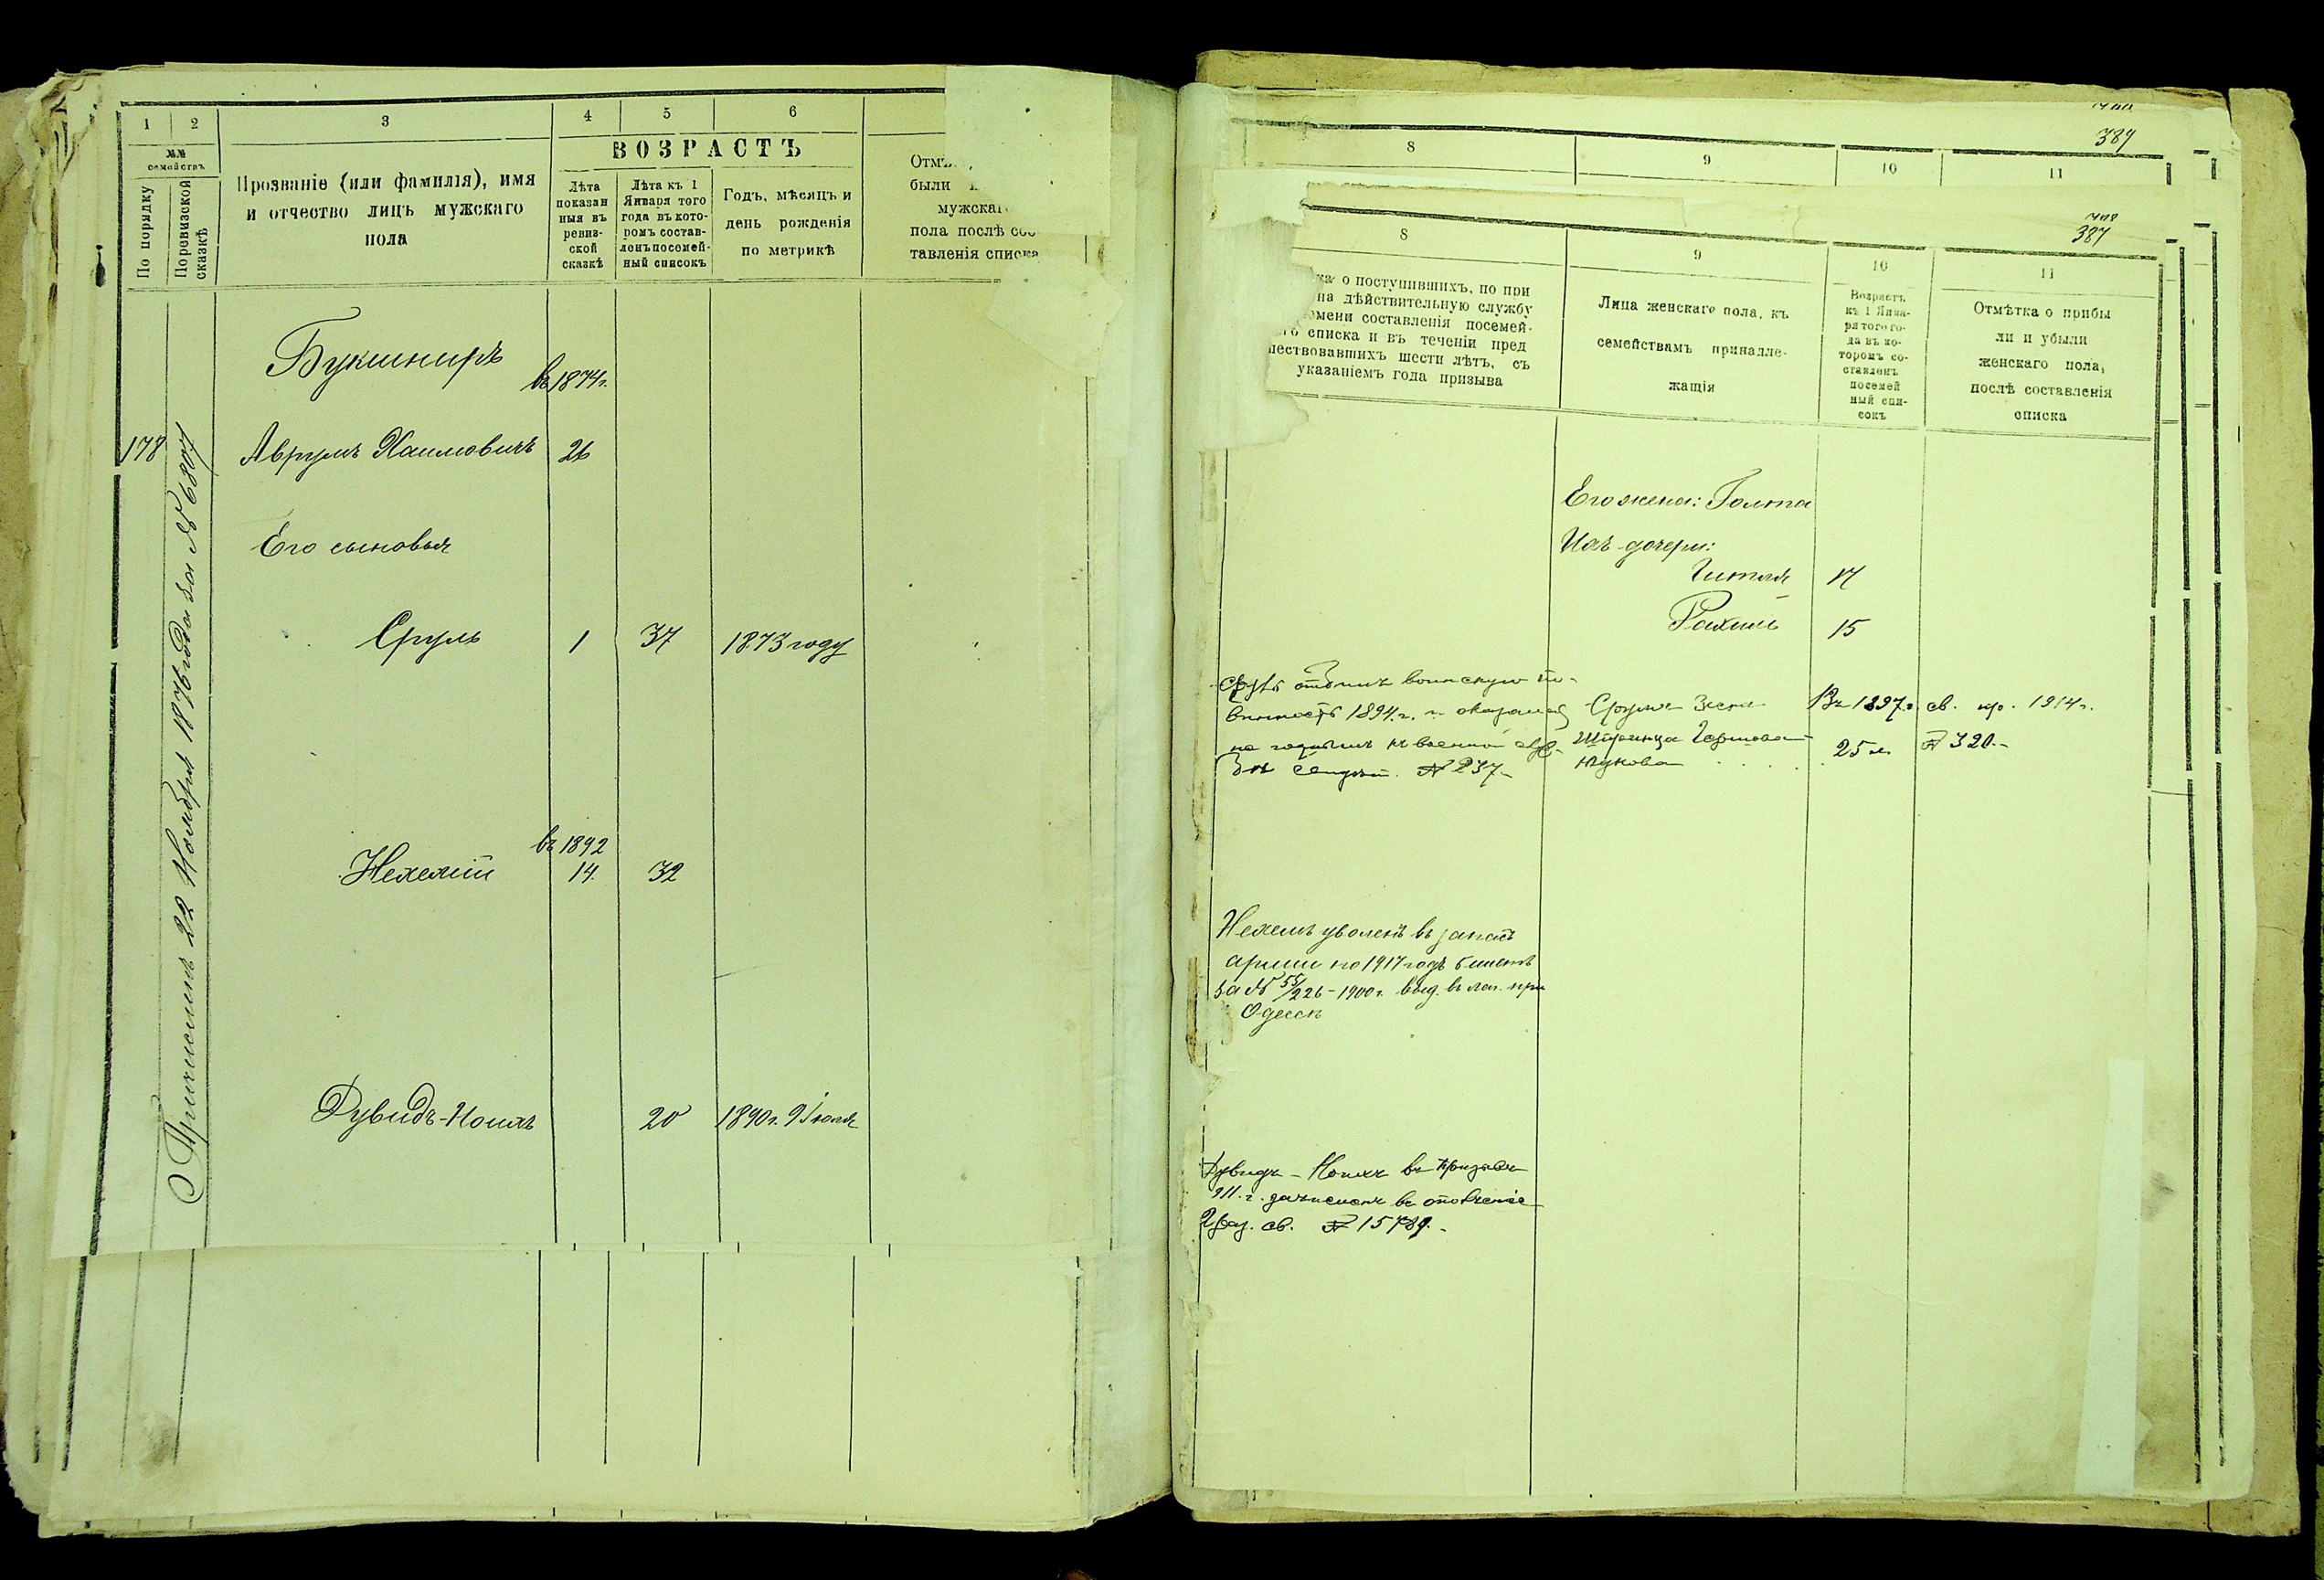 1 2 3 4 5 6
№№ семействъ
По порядку
По ревизской сказкѣ
Прозваніе (или фамилія), имя
и отчество лицъ мужскаго
пола
ВОЗРАСТЪ
Лѣта
показан
ныя въ
ревиз-
ской
сказкѣ
Лѣта къ 1
Января того
года въ кото-
ромъ состав-
ленъ посемей-
ный списокъ
Годъ, мѣсяцъ и
день рожденія
по метрикѣ
Отмѣ
были
мужска
пола послѣ сос
тавленія списка
Букшниръ
въ 1874 г.
178
Аврумъ Хаимовичъ 26
Его сыновья
Сруль 1 37 1873 году
въ 1892
Нехемій 14. 32
Дувидъ-Ноихъ 20 1890 г. 9 Іюля
Причисленъ 22 Ноября 1876 года за № 6807
387
8 9 10 11
387
8 9 10 11
о поступившихъ, по при
на дѣйствительную службу
мени составленія посемей-
списка и въ теченіи пред
шествовавшихъ шести лѣтъ, съ
указаніемъ года призыва
Лица женскаго пола, къ
семействамъ принадле-
жащія
Возрастъ
къ 1 Янва-
ря того го-
да въ ко-
торомъ со-
ставленъ
посемей
ный спи-
сокъ
Отмѣтка о прибы
ли и убыли
женскаго пола,
послѣ составленія
списка
Его жена: Голта
Ихъ дочери:
Гитля 17
Рахиль 15
Сруль отбылъ воинскую по-
винность 1894 г. и оказался
не годнымъ къ военной служ-
бѣ № 237
Сруля жена
Шпринца
Въ 1897 г.
25 л.
св. пр. 1914 г.
№ 320.
Нехемъ уволенъ въ запасъ
арміи по 1917 годъ билетъ
за № 55/226 - 1900 г. выд. въ лаг. при
Одессѣ
Дувидъ - Ноихъ въ призывъ
911 г. зачисленъ въ ополченіе
2 раз. св. № 15789.